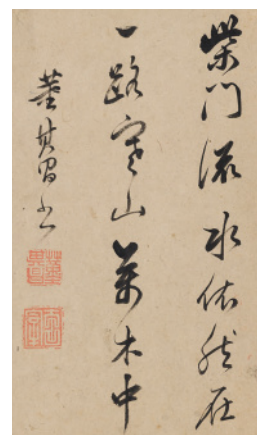 柴門流水依然在
一路寒山萬木中
董其昌書